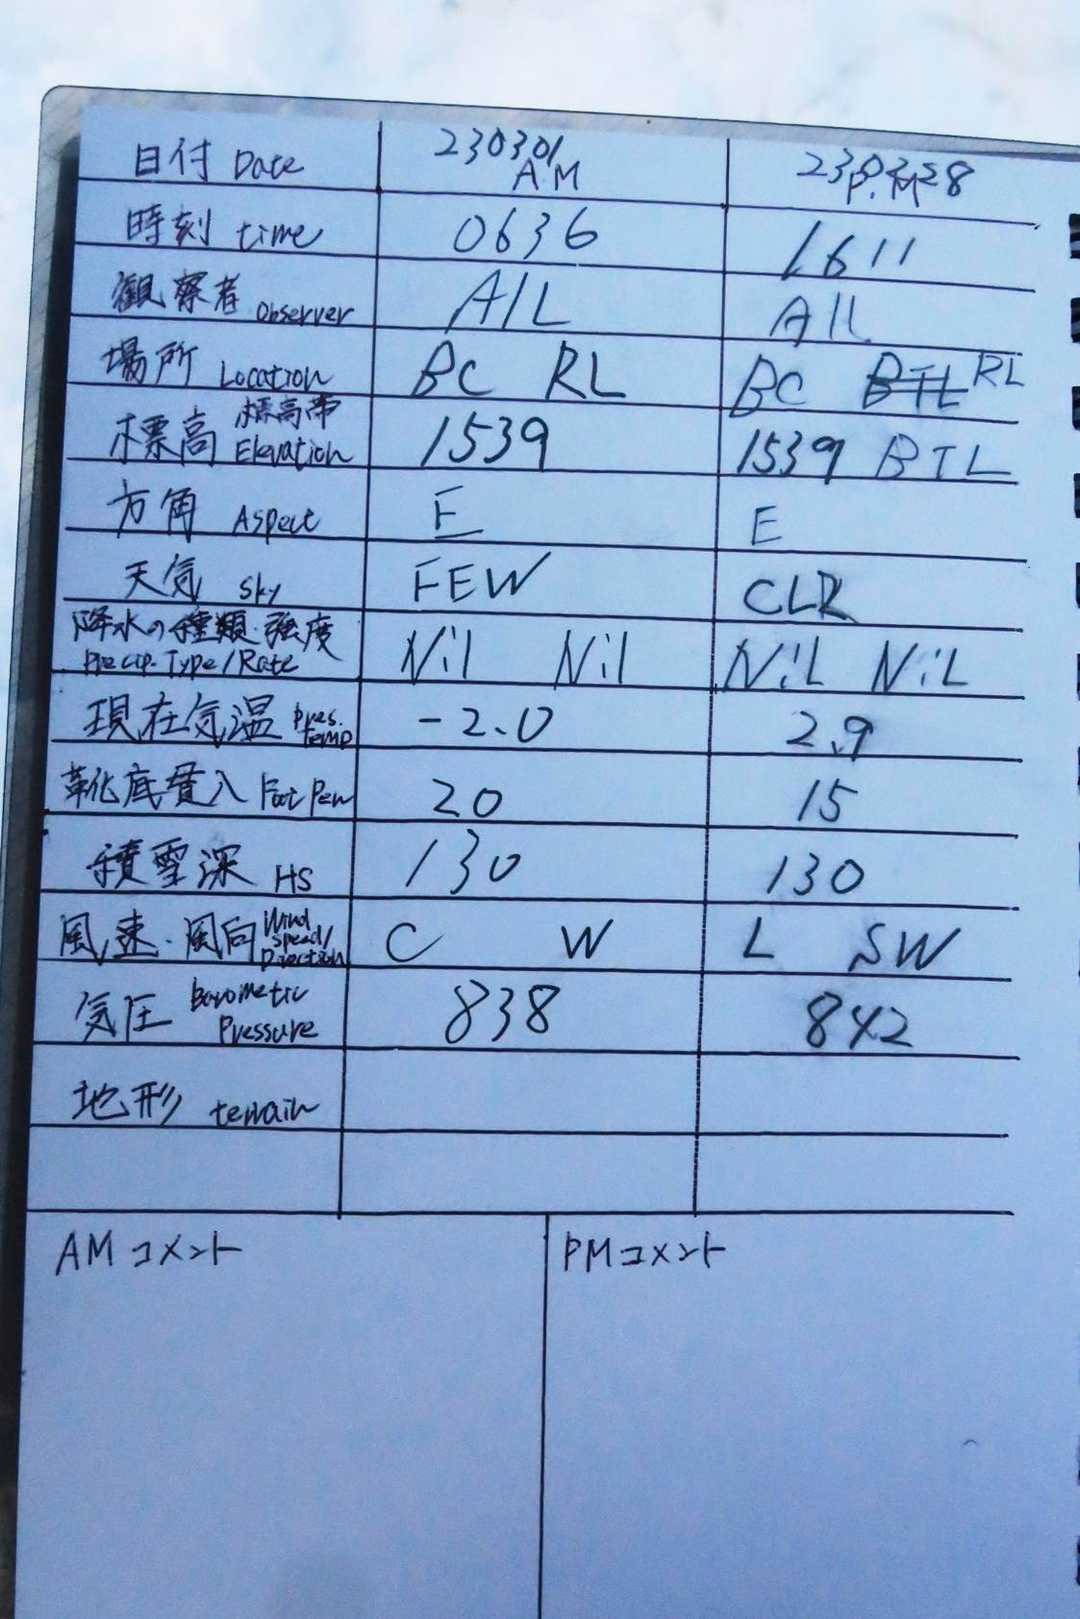 日付 Date 230301 230228
A.M P.M
時刻 time 0636 1611
観察者 Observer All All
場所 Location BC RL BC BTL RL
標高 標高帯 Elevation 1539 1539 BTL
方角 Aspect E E
天気 Sky FEW CLR
降水の種類・強度 Nil Nil NiL NiL
Precip. Type/Rate
現在気温 pres. temp -2.0 2.9
靴底貫入 Foot Pen 20 15
積雪深 HS 130 130
風速・風向 Wind speed/ Direction C W L SW
気圧 Barometric Pressure 838 842
地形 terrain
AMコメント PMコメント